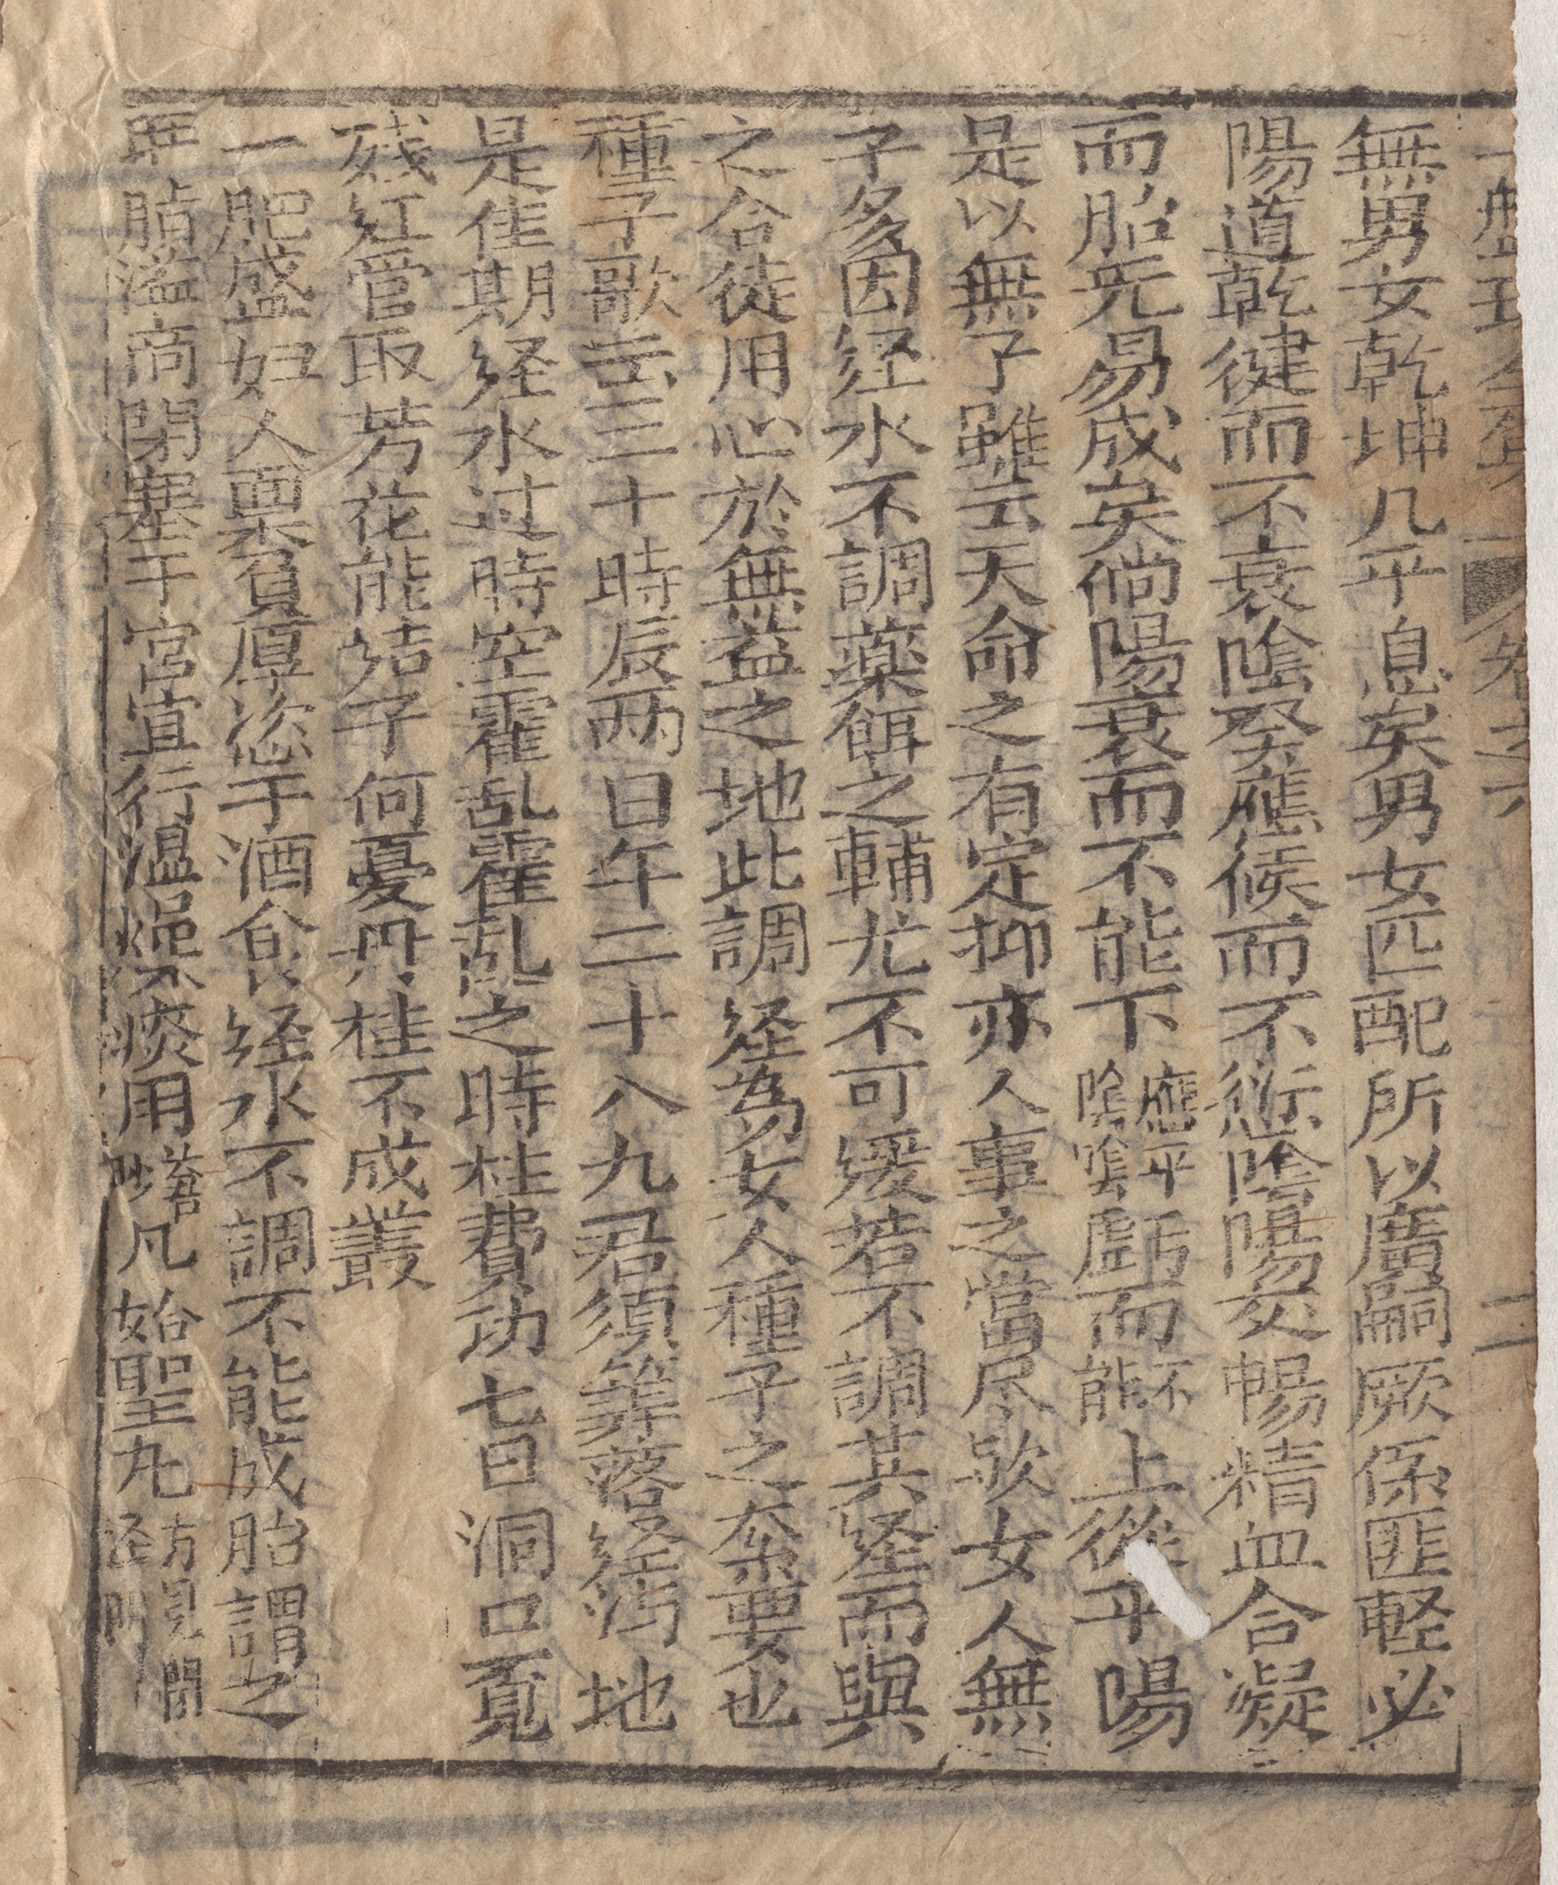 一盤珠全集 卷之六 二
無男女乾坤几乎息矣男女匹配所以廣嗣厥係匪軽必
陽道乾健而不衰陰癸應候而不愆陰陽交暢精血合凝
而胎兕易成矣倘陽衰而不能下應乎陰陰虧而不能上從乎陽
是以無子雖云天命之有定抑亦人事之當尽欤女人無
子多因経水不調藥餌之輔尤不可缓若不調其経而與
之合徒用心於無益之地此調経為女人種子之紧要也
種子歌云三十時辰两日半二十八九君須筭落红满地
是佳期経水过時空霍乱霍乱之時枉費功七日洞口覔
残红管取芳花能结子何憂丹桂不成叢
一肥盛妇人禀負厚恣于酒食経水不調不能成胎謂之
脂溢满閉塞子宮宜行温燥痰用蒼凡始聖丸方見開